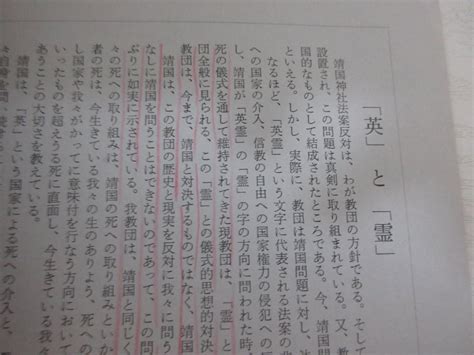 「英」と「霊」
靖国神社法案反対は、わが教団の方針である。そして
設置され、この問題は真剣に取り組まれている。又、教
国的なものとして結成されたところである。今、靖国
といえる。しかし、実際に、教団は靖国問題に対し、
なるほど、「英霊」という文字に代表される法案の
への国家の介入、信教の自由への国家権力の侵犯への
し、靖国が「英霊」の「霊」の字の方向に問われた時、
死の儀式を通して維持されてきた現教団は、「霊」と
団全般に見られる、この「霊」との儀式的思想的対決
教団は、今まで、靖国と対決するものではなく、靖国
靖国は、この教団の歴史と現実を反対に我々に問う
なしに靖国を問うことはできないのであって、この問
ぶりに如実に示されている。我教団は、靖国と同じく
々の死への取り組みは、靖国の死への取り組みといか
者の死は、今生きている我々の生のありよう、死への
し国家や我々がかってに意味付を行なう方向において
いったものを超えうる死に直面し、今生きている我々
あうことの大切さを教えている。
靖国は、「英」という国家による死への介入と、